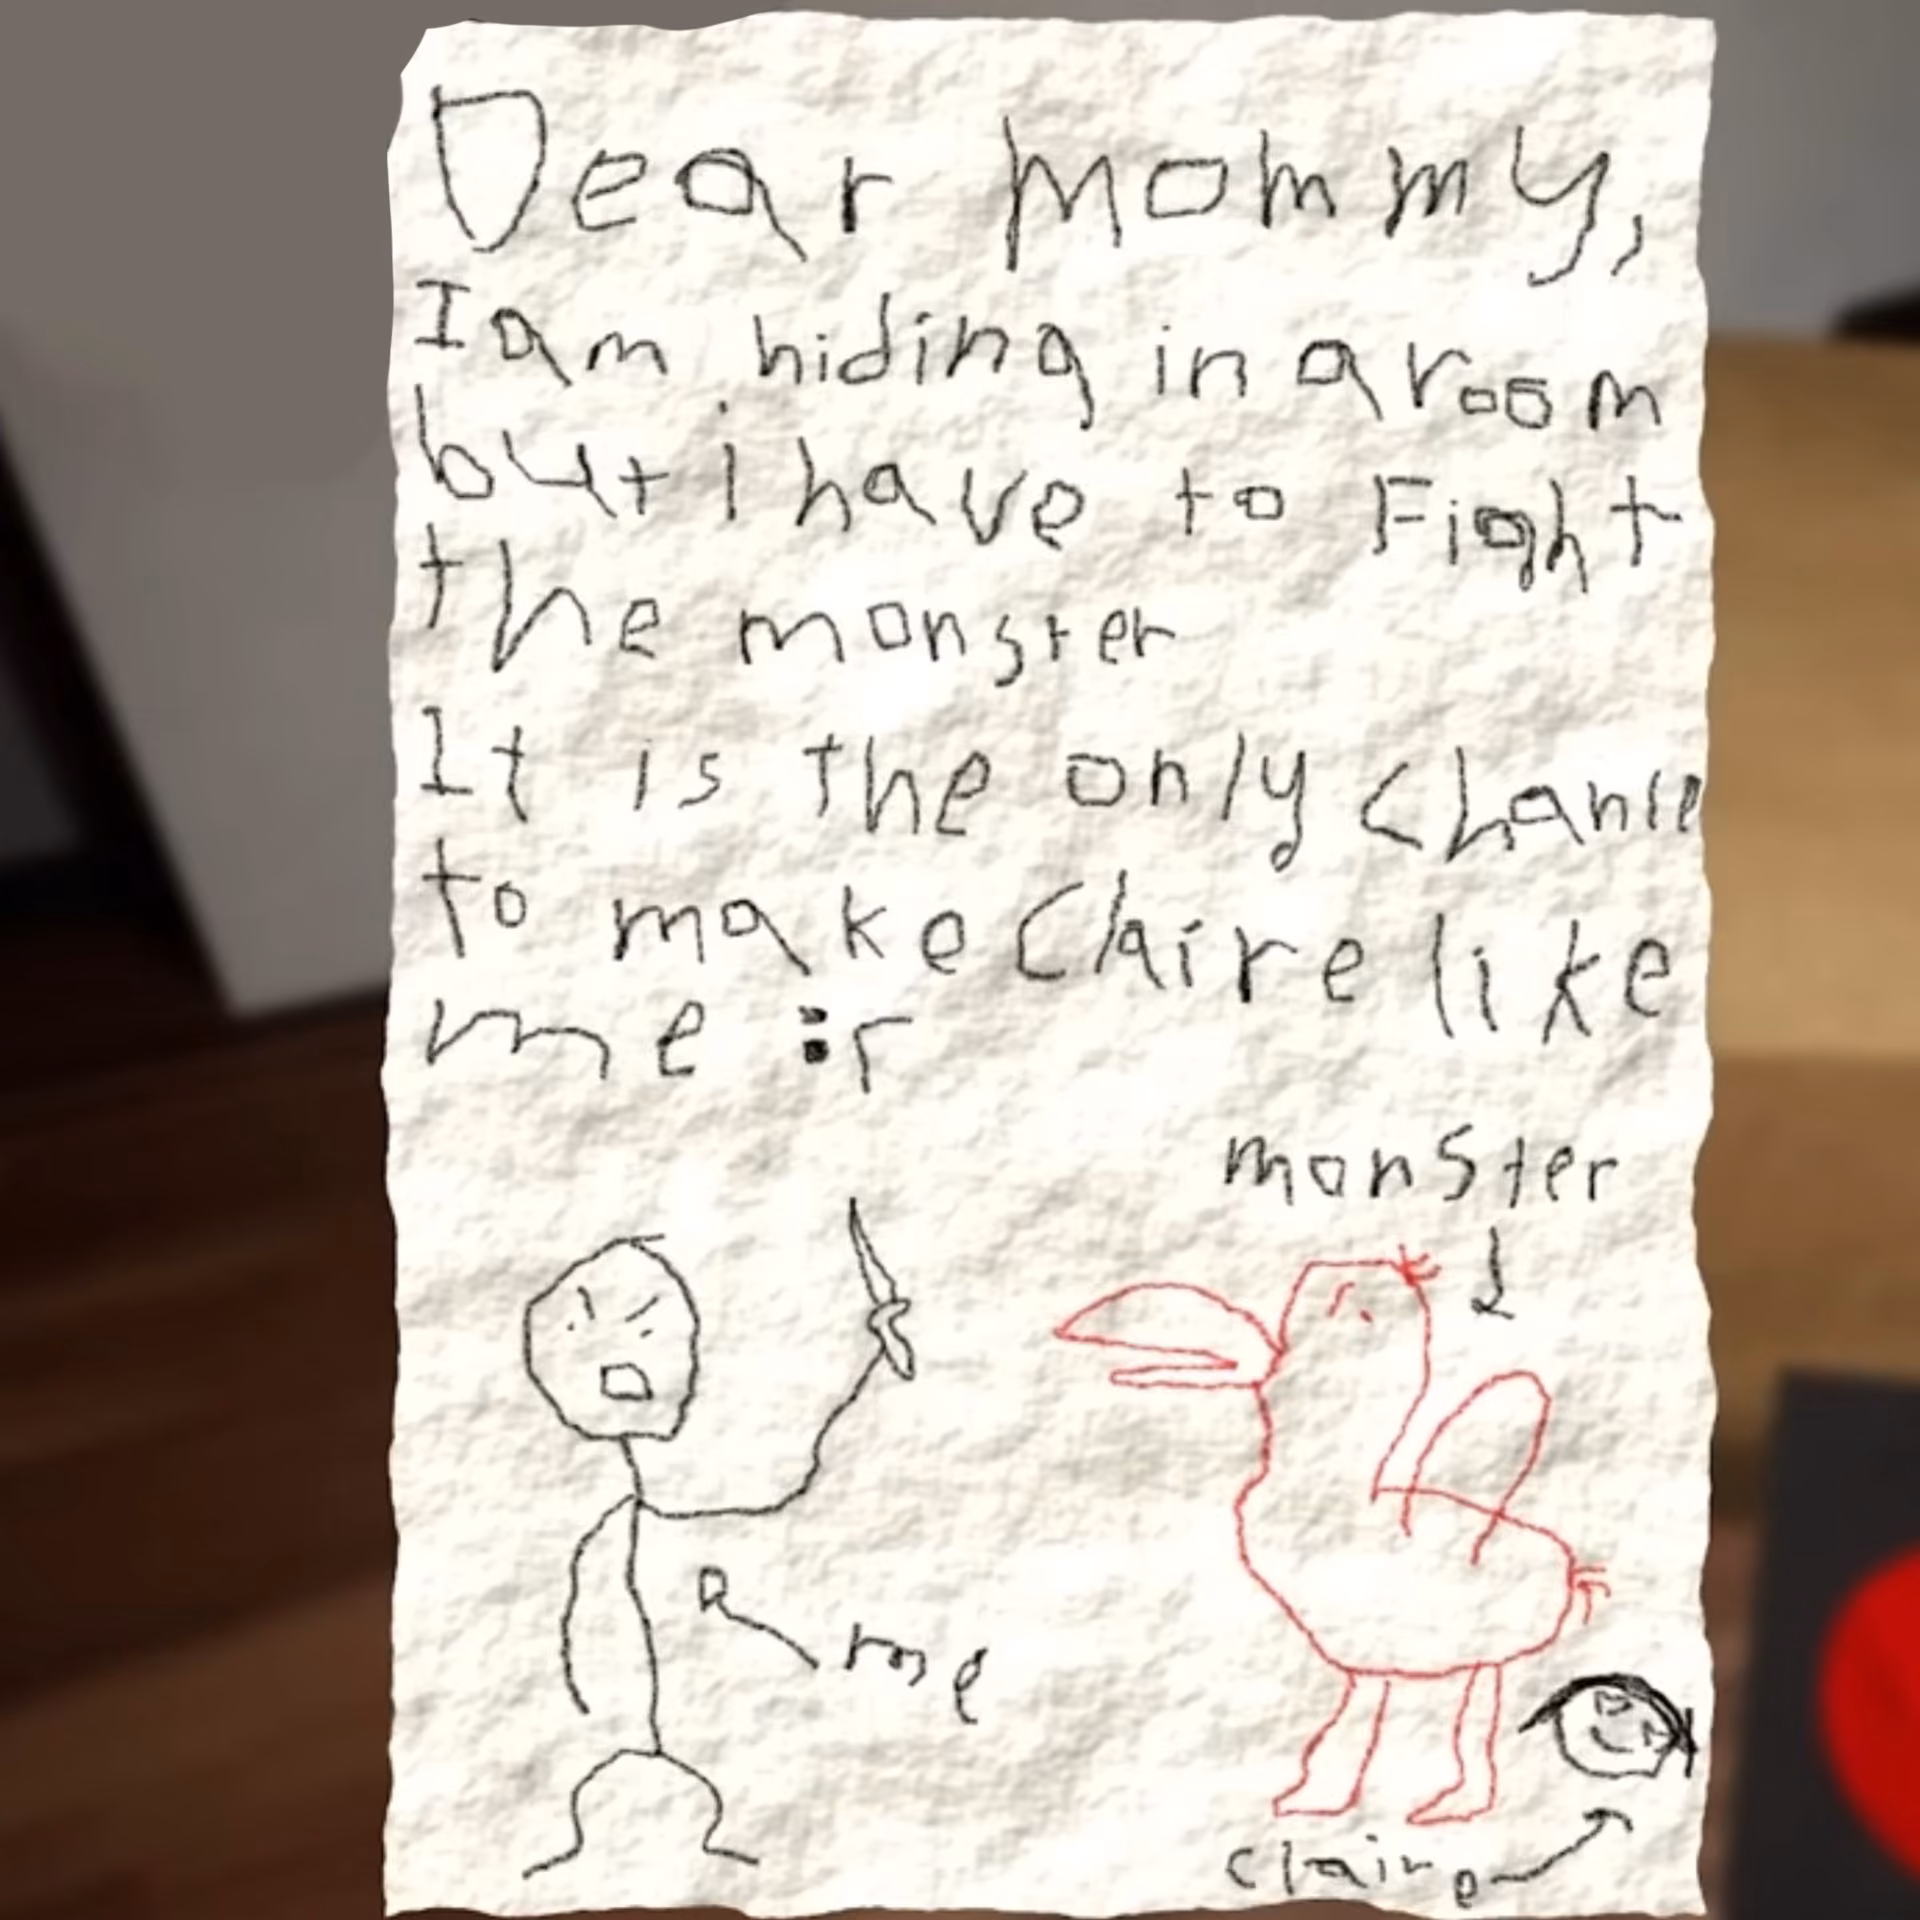 Dear Mommy,
I am hiding in a room
but i have to Fight
the monster
It is the only chance
to make Claire like
me :r
monster
me
claire